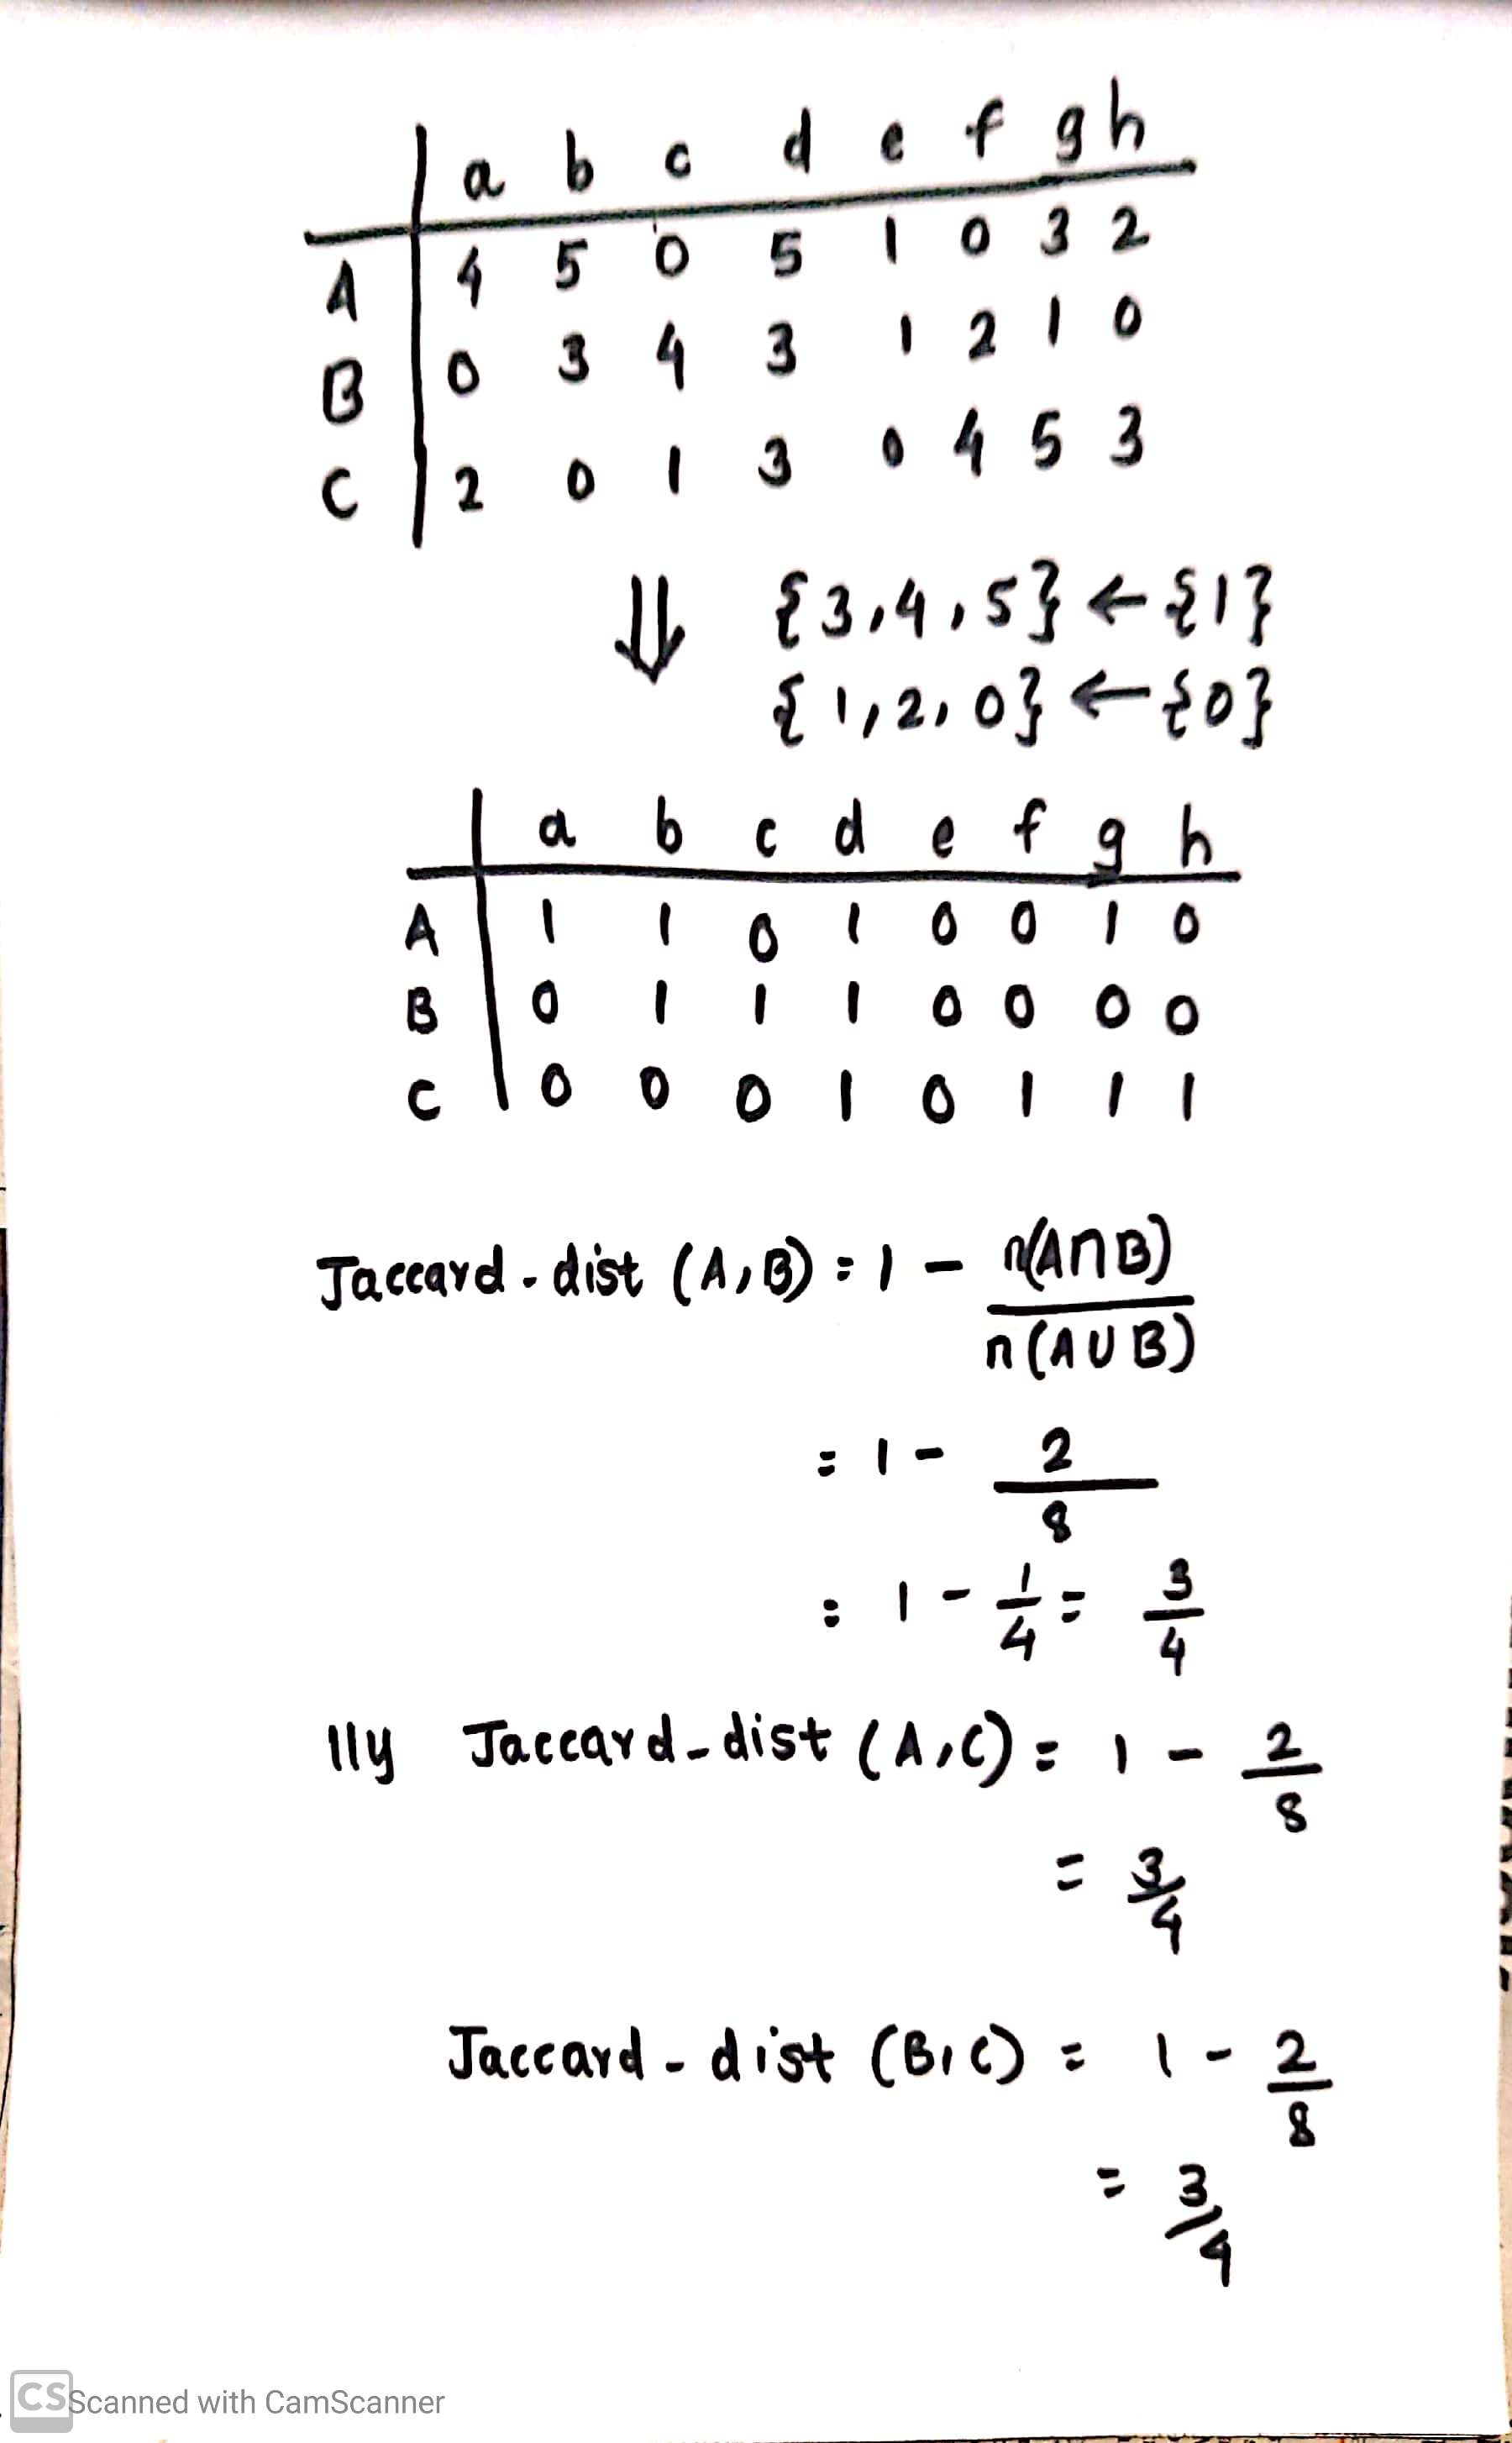 a b c d e f g h
A 4 5 0 5 1 0 3 2
B 0 3 4 3 1 2 1 0
C 2 0 1 3 0 4 5 3
⇓ {3,4,5} ← {1}
{1,2,0} ← {0}
a b c d e f g h
A 1 1 0 1 0 0 1 0
B 0 1 1 1 0 0 0 0
C 0 0 0 1 0 1 1 1
Jaccard-dist (A,B) = 1 - n(A∩B)
n(A∪B)
= 1 - 2
8
= 1 - 1/4 = 3/4
lly Jaccard-dist (A,C) = 1 - 2/8
= 3/4
Jaccard-dist (B,C) = 1 - 2/8
= 3/4
CS Scanned with CamScanner